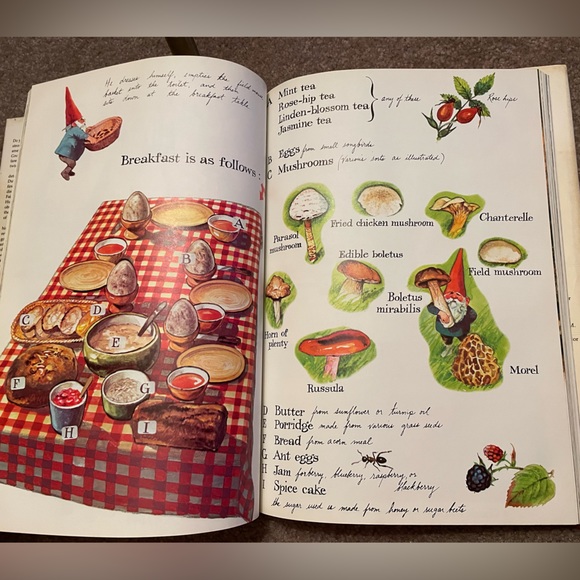 He dresses himself, empties the field mouse
basket into the toilet, and then
sits down at the breakfast table
Breakfast is as follows :
A
B
C
D
E
F
G
H
I
A Mint tea
Rose-hip tea
Linden-blossom tea
Jasmine tea
any of these
Rose hips
B Eggs from small songbirds
C Mushrooms (Various sorts as illustrated)
Parasol
mushroom
Fried chicken mushroom
Chanterelle
Edible boletus
Field mushroom
Boletus
mirabilis
Horn of
plenty
Russula
Morel
D Butter from sunflower or turnip oil
E Porridge made from various grass seeds
F Bread from acorn meal
G Ant eggs
H Jam forberry, blueberry, raspberry, or
blackberry
I Spice cake
the sugar used is made from honey or sugar beets